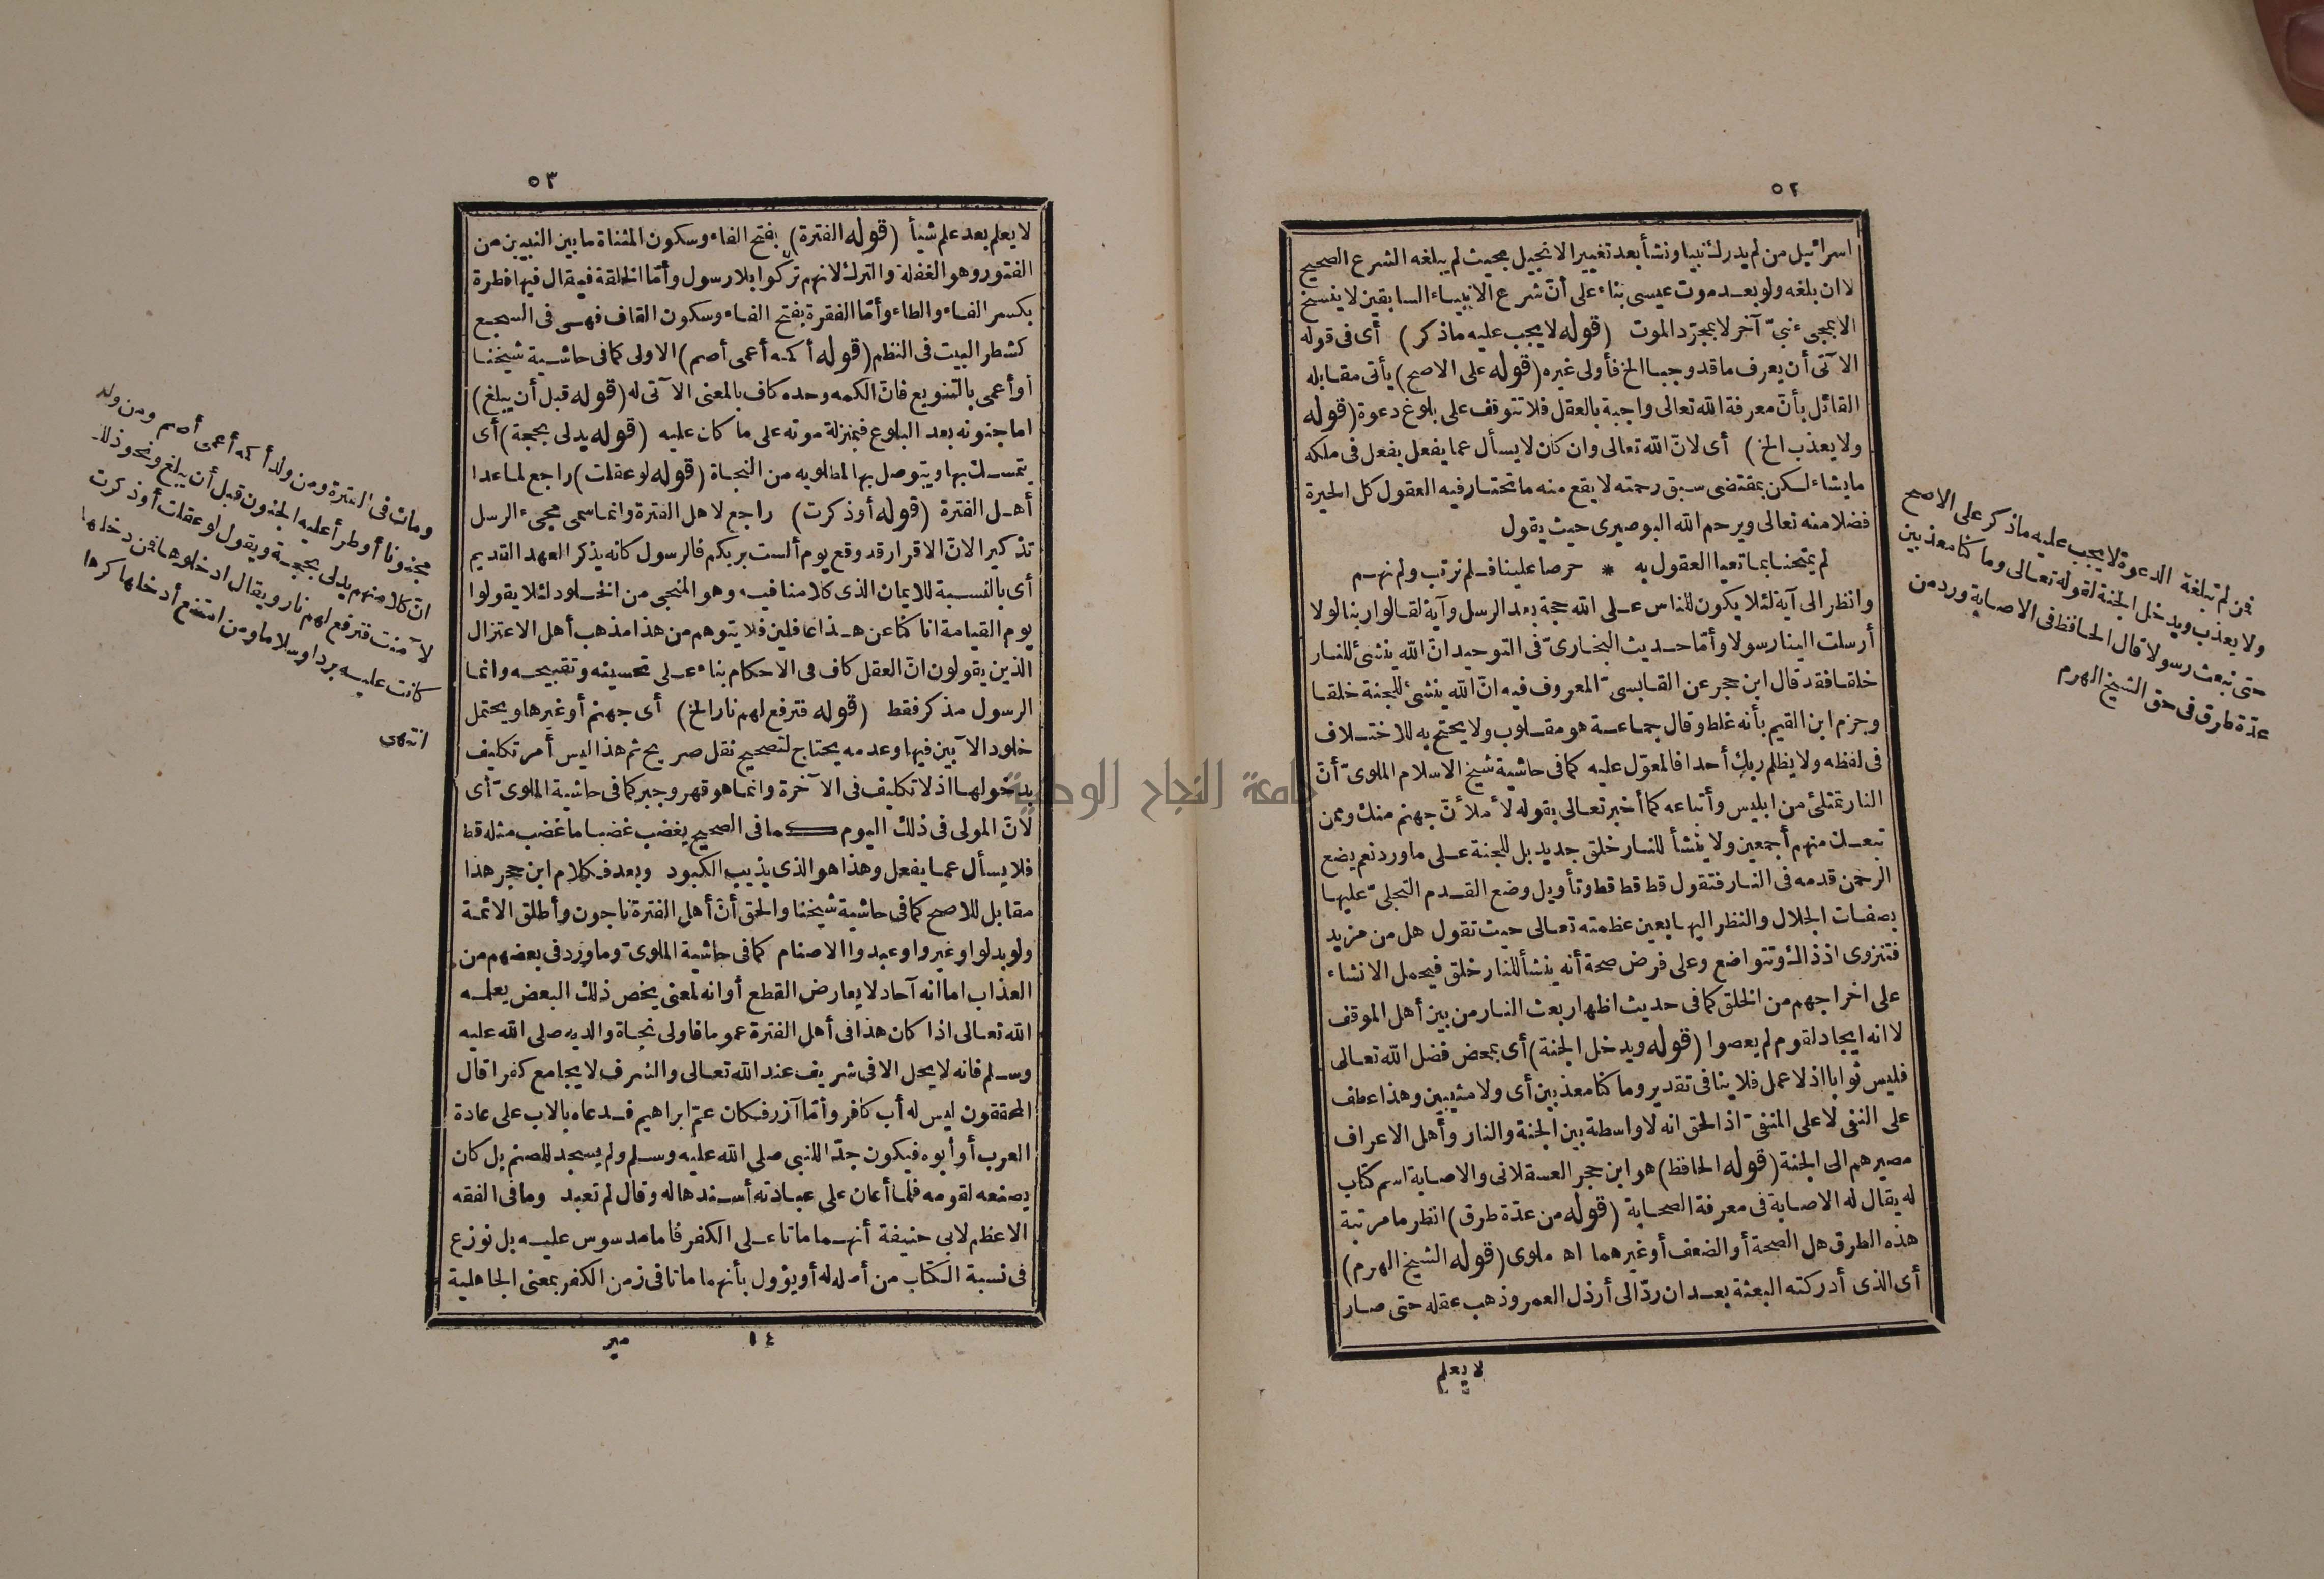 ٥٢
اسرائيل من لم يدرك نبيا ونشأ بعد تغيير الانجيل بحيث لم يبلغه الشرع الصحيح
لا ان بلغه ولو بعد موت عيسى بناء على أنّ شرع الانبياء السابقين لا ينسخ
الا بمجىء نبىّ آخر لا بمجرّد الموت (قوله لا يجب عليه ما ذكر) أى فى قوله
الآتى أن يعرف ما قد وجبا الخ فأولى غيره (قوله على الاصح) يأتى مقابله
القائل بأنّ معرفة الله تعالى واجبة بالعقل فلا تتوقف على بلوغ دعوة (قوله
ولا يعذب الخ) أى لانّ الله تعالى وان كان لا يسأل عما يفعل يفعل فى ملكه
ما يشاء لكن بمقتضى سبق رحمته لا يقع منه ما تحتار فيه العقول كل الحيرة
فضلا منه تعالى ويرحم الله البوصيرى حيث يقول
لم يمتحنا بما تعيا العقول به * حرصا علينا فلم نرتب ولم نهم
وانظر الى آية لئلا يكون للناس على الله حجة بعد الرسل وآية لقالوا ربنا لولا
أرسلت الينا رسولا وأمّا حديث البخارىّ فى التوحيد انّ الله ينشئ للنار
خلقا فقد قال ابن حجر عن القابسىّ المعروف فيه انّ الله ينشئ للجنة خلقا
وجزم ابن القيم بأنه غلط وقال جماعة هو مقلوب ولا يحتج به للاختلاف
فى لفظه ولا يظلم ربك أحدا فالمعوّل عليه كما فى حاشية شيخ الاسلام الملوىّ أنّ
النار تمتلئ من ابليس وأتباعه كما أخبر تعالى بقوله لأملأنّ جهنم منك وممن
تبعك منهم أجمعين ولا ينشأ للنار خلق جديد بل للجنة على ما ورد نعم يضع
الرحمن قدمه فى النار فتقول قط قط قط وتأويل وضع القدم التجلىّ عليها
بصفات الجلال والنظر اليها بعين عظمته تعالى حيث تقول هل من مزيد
فتنزوى اذ ذاك وتتواضع وعلى فرض صحة أنه ينشأ للنار خلق فيحمل الانشاء
على اخراجهم من الخلق كما فى حديث اظهار بعث النار من بين أهل الموقف
لا انه ايجاد لقوم لم يعصوا (قوله ويدخل الجنة) أى بمحض فضل الله تعالى
فليس ثوابا اذ لا عمل فلا ينافى تقدير وما كنا معذبين أى ولا مثيبين وهذا عطف
على النفى لا على المنفىّ اذ الحق انه لا واسطة بين الجنة والنار وأهل الاعراف
مصيرهم الى الجنة (قوله الحافظ) هو ابن حجر العسقلانى والاصابة اسم كتاب
له يقال له الاصابة فى معرفة الصحابة (قوله من عدّة طرق) انظر ما مرتبة
هذه الطرق هل الصحة أو الضعف أو غيرهما اه ملوى (قوله الشيخ الهرم)
أى الذى أدركته البعثة بعد ان ردّ الى أرذل العمر وذهب عقله حتى صار
لا يعلم
فمن لم تبلغه الدعوة لا يجب عليه ما ذكر على الاصح
ولا يعذب ويدخل الجنة لقوله تعالى وما كنا معذبين
حتى نبعث رسولا قال الحافظ فى الاصابة ورد من
عدّة طرق فى حق الشيخ الهرم
٥٣
لا يعلم بعد علم شيأ (قوله الفترة) بفتح الفاء وسكون المثناة ما بين النبيين من
الفتور وهو الغفلة والترك لانهم تركوا بلا رسول وأمّا الخلقة فيقال فيها فطرة
بكسر الفاء والطاء وأمّا الفقرة بفتح الفاء وسكون القاف فهى فى السجع
كشطر البيت فى النظم (قوله أكمه أعمى أصم) الاولى كما فى حاشية شيخنا
أو أعمى بالتنويع فانّ الكمه وحده كاف بالمعنى الآتى له (قوله قبل أن يبلغ)
اما جنونه بعد البلوغ فبمنزلة موته على ما كان عليه (قوله يدلى بحجة) أى
يتمسك بها ويتوصل بها لمطلوبه من النجاة (قوله لو عقلت) راجع لما عدا
أهل الفترة (قوله أو ذكرت) راجع لاهل الفترة وانما سمى مجىء الرسل
تذكيرا لانّ الاقرار قد وقع يوم ألست بربكم فالرسول كانه يذكر العهد القديم
أى بالنسبة للايمان الذى كلامنا فيه وهو المنجى من الخلود لئلا يقولوا
يوم القيامة انا كنا عن هذا غافلين فلا يتوهم من هذا مذهب أهل الاعتزال
الذين يقولون انّ العقل كاف فى الاحكام بناء على تحسينه وتقبيحه وانما
الرسول مذكر فقط (قوله فترفع لهم نار الخ) أى جهنم أو غيرها ويحتمل
خلود الآبين فيها وعدمه يحتاج لتصحيح نقل صريح ثم هذا ليس أمر تكليف
بدخولها اذ لا تكليف فى الآخرة وانما هو قهر وجبر كما فى حاشية الملوىّ أى
لانّ المولى فى ذلك اليوم كما فى الصحيح يغضب غضبا ما غضب مثله قط
فلا يسأل عما يفعل وهذا هو الذى يذيب الكبود وبعد فكلام ابن حجر هذا
مقابل للاصح كما فى حاشية شيخنا والحق أنّ أهل الفترة ناجون وأطلق الائمة
ولو بدلوا وغيروا وعبدوا الاصنام كما فى حاشية الملوىّ وما ورد فى بعضهم من
العذاب اما انه آحاد لا يعارض القطع أو انه لمعنى يخص ذلك البعض يعلمه
الله تعالى اذا كان هذا فى أهل الفترة عموما فاولى نجاة والديه صلى الله عليه
وسلم فانه لا يحل الا فى شريف عند الله تعالى والشرف لا يجامع كفرا قال
المحققون ليس له أب كافر وأمّا آزر فكان عمّ ابراهيم فدعاه بالاب على عادة
العرب أو أبوه فيكون جدّا للنبى صلى الله عليه وسلم ولم يسجد للصنم بل كان
يصنعه لقومه فلما أعان على عبادته أسندها له وقال لم تعبد وما فى الفقه
الاعظم لابى حنيفة أنهما ماتا على الكفر فاما مدسوس عليه بل نوزع
فى نسبة الكتاب من أصله له أو يؤول بأنهما ماتا فى زمن الكفر بمعنى الجاهلية
١٤ مير
ومات فى الفترة ومن ولد أكمه أعمى أصم ومن ولد
مجنونا أو طرأ عليه الجنون قبل أن يبلغ ونحو ذلك
انّ كلا منهم يدلى بحجة ويقول لو عقلت أو ذكرت
لآمنت فترفع لهم نار ويقال ادخلوها فمن دخلها
كانت عليه بردا وسلاما ومن امتنع أدخلها كرها
انتهى
جامعة النجاح الوطنية